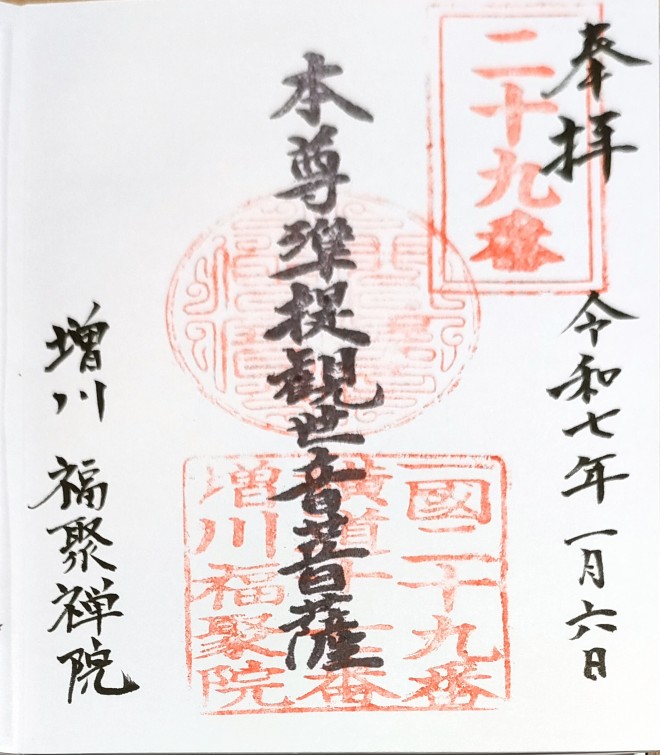 奉拝
二十九番
令和七年一月六日
本尊準提観世音菩薩
一國二十九番
横道十二番
増川福聚院
増川 福聚禅院